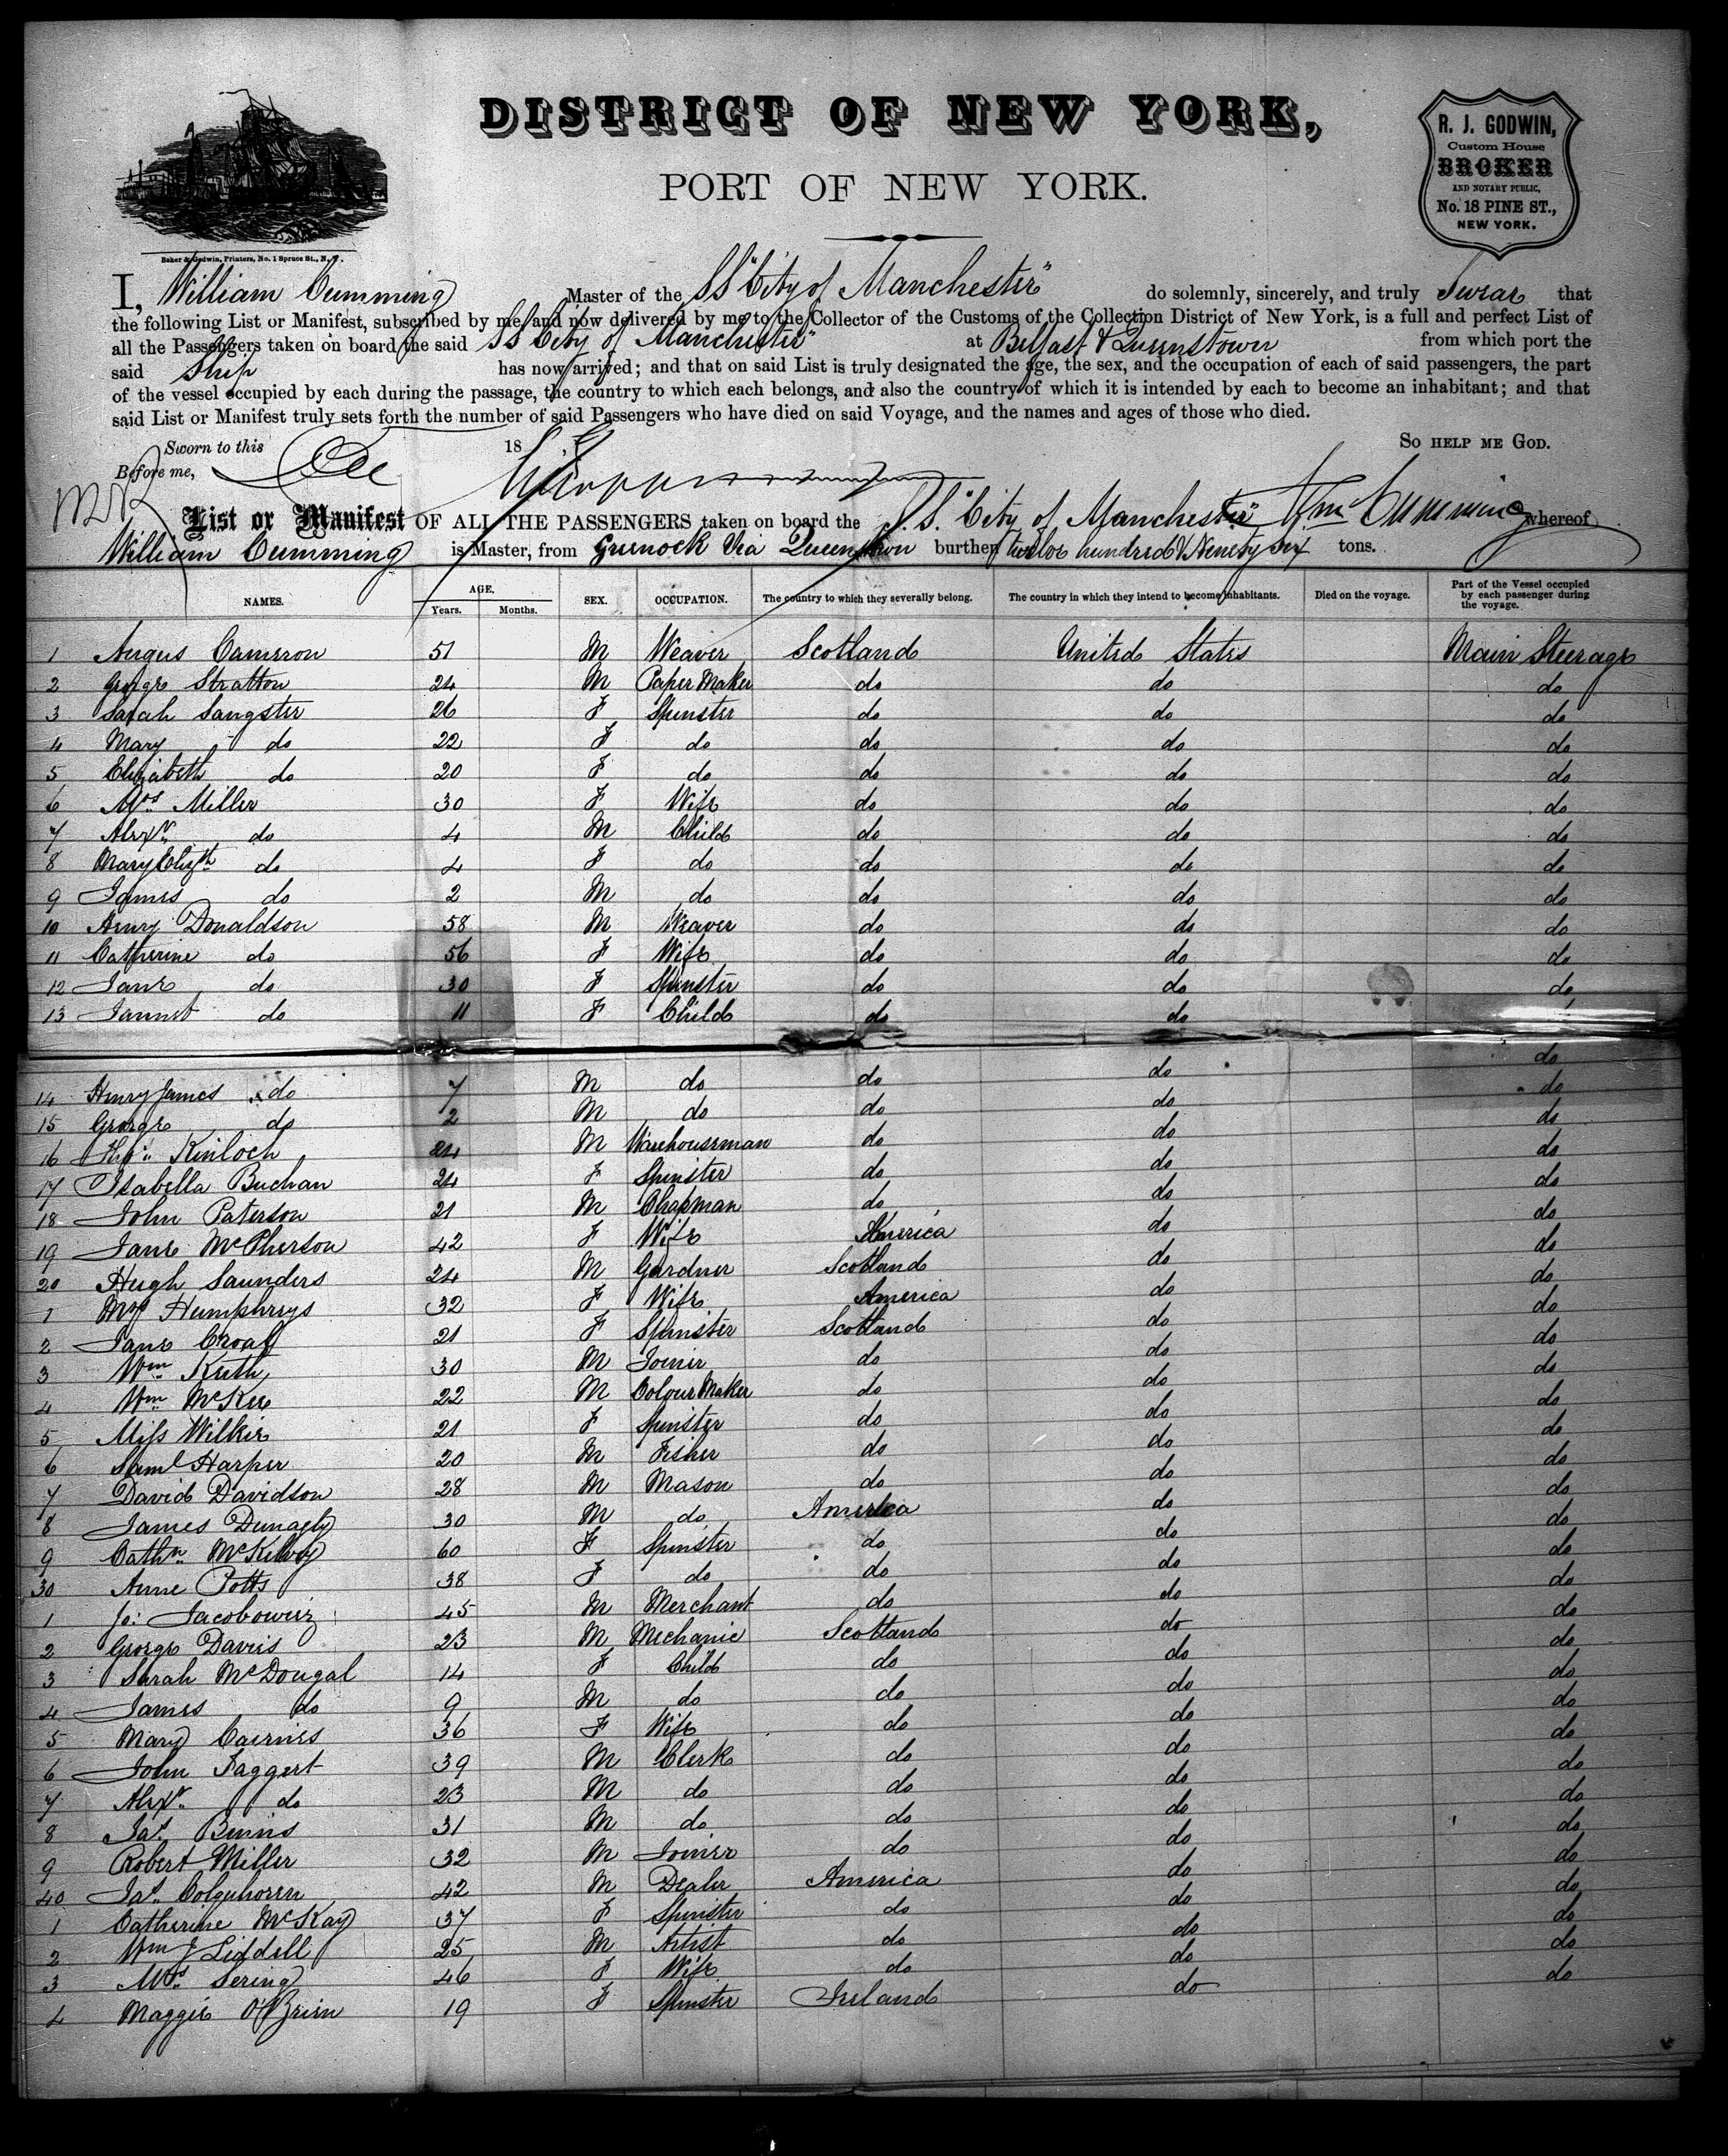 DISTRICT OF NEW YORK,
PORT OF NEW YORK.
R. J. GODWIN,
Custom House
BROKER
AND NOTARY PUBLIC,
No. 18 PINE ST.,
NEW YORK.
Baker & Godwin, Printers, No. 1 Spruce St., N. Y.
I, William Cumming Master of the SS "City of Manchester" do solemnly, sincerely, and truly Swear that
the following List or Manifest, subscribed by me, and now delivered by me to the Collector of the Customs of the Collection District of New York, is a full and perfect List of
all the Passengers taken on board the said SS City of Manchester" at Belfast & Queenstown from which port the
said Ship has now arrived; and that on said List is truly designated the age, the sex, and the occupation of each of said passengers, the part
of the vessel occupied by each during the passage, the country to which each belongs, and also the country of which it is intended by each to become an inhabitant; and that
said List or Manifest truly sets forth the number of said Passengers who have died on said Voyage, and the names and ages of those who died.
Sworn to this 18 So HELP ME GOD.
Before me,
Wm Cumming
List or Manifest OF ALL THE PASSENGERS taken on board the S.S. "City of Manchester" whereof
William Cumming is Master, from Greenock Via Queenstown burthen twelve hundred & Ninety six tons.
NAMES. AGE. Years. Months. SEX. OCCUPATION. The country to which they severally belong. The country in which they intend to become inhabitants. Died on the voyage. Part of the Vessel occupied by each passenger during the voyage.
1 Angus Cameron 51 M Weaver Scotland United States Main Steerage
2 George Stratton 24 M Paper Maker do do do
3 Sarah Sangster 26 F Spinster do do do
4 Mary do 22 F do do do do
5 Elizabeth do 20 F do do do do
6 Mrs Miller 30 F Wife do do do
7 Alexr. do 4 M Child do do do
8 Mary Elizth do 4 F do do do do
9 James do 2 M do do do do
10 Henry Donaldson 58 M Weaver do do do
11 Catherine do 56 F Wife do do do
12 Jane do 30 F Spinster do do do
13 Jannet do 11 F Child do do do
14 Henry James do 7 M do do do do
15 George do 2 M do do do do
16 Kinloch 24 M Warehouseman do do do
17 Isabella Buchan 24 F Spinster do do do
18 John Paterson 21 M Chapman do do do
19 Jane McPherson 42 F Wife America do do
20 Hugh Saunders 24 M Gardner Scotland do do
1 Mrs Humphreys 32 F Wife America do do
2 Jane Croall 21 F Spinster Scotland do do
3 Wm. Keith 30 M Joiner do do do
4 Wm McKee 22 M Colour Maker do do do
5 Miss Wilkie 21 F Spinster do do do
6 Saml Harper 20 M Fisher do do do
7 David Davidson 28 M Mason do do do
8 James Dunagly 30 M do America do do
9 Cathn. McKelvey 60 F Spinster do do do
30 Anne Potts 38 F do do do do
1 Jo: Jacobowiez 45 M Merchant do do do
2 George Davies 23 M Mechanic Scotland do do
3 Sarah McDougal 14 F Child do do do
4 James do 9 M do do do do
5 Mary Cairnes 36 F Wife do do do
6 John Taggert 39 M Clerk do do do
7 Alexr. do 23 M do do do do
8 Jas. Binns 31 M do do do do
9 Robert Miller 32 M Joiner do do do
40 Jas. Colquhoren 42 M Dealer America do do
1 Catherine McKay 37 F Spinster do do do
2 Wm J Liddell 25 M Artist do do do
3 Mrs. Sering 46 F Wife do do do
4 Maggie O'Brien 19 F Spinster Ireland do